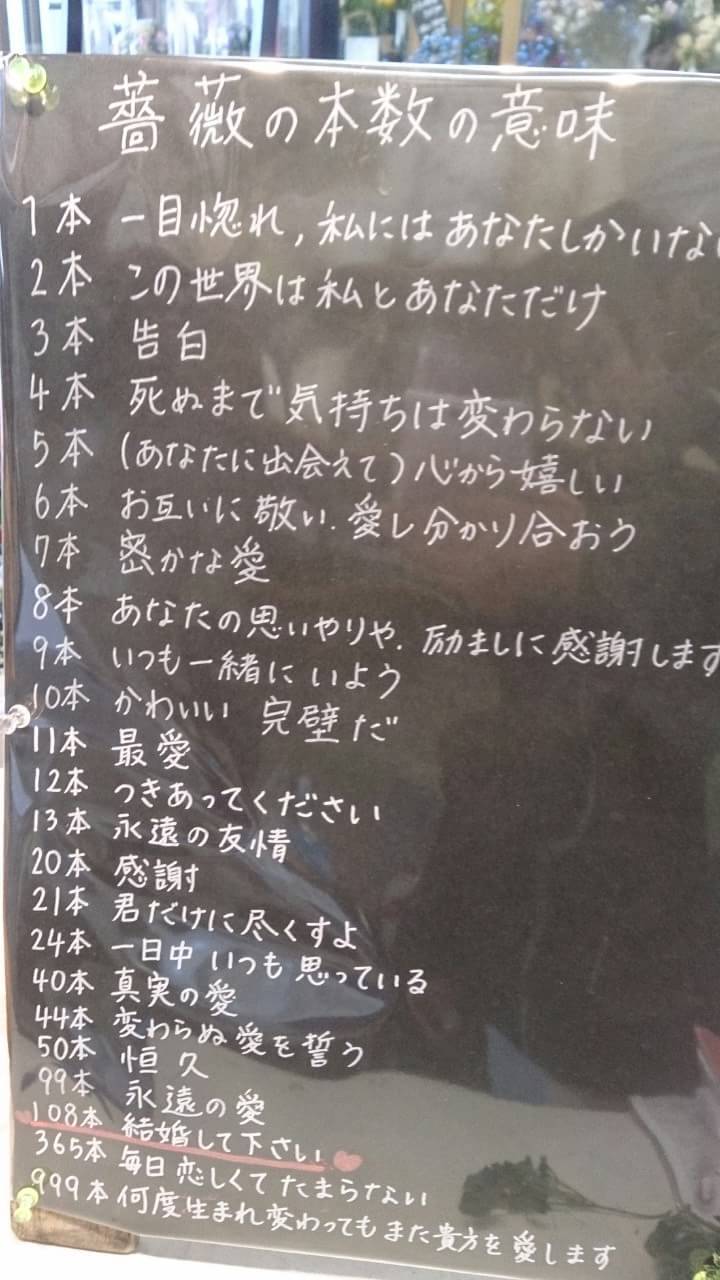 薔薇の本数の意味
1本 一目惚れ,私にはあなたしかいない
2本 この世界は私とあなただけ
3本 告白
4本 死ぬまで気持ちは変わらない
5本 (あなたに出会えて)心から嬉しい
6本 お互いに敬い.愛し分かり合おう
7本 密かな愛
8本 あなたの思いやりや.励ましに感謝します
9本 いつも一緒にいよう
10本 かわいい 完璧だ
11本 最愛
12本 つきあってください
13本 永遠の友情
20本 感謝
21本 君だけに尽くすよ
24本 一日中 いつも思っている
40本 真実の愛
44本 変わらぬ愛を誓う
50本 恒久
99本 永遠の愛
108本 結婚して下さい
365本 毎日恋しくてたまらない
999本 何度生まれ変わってもまた貴方を愛します